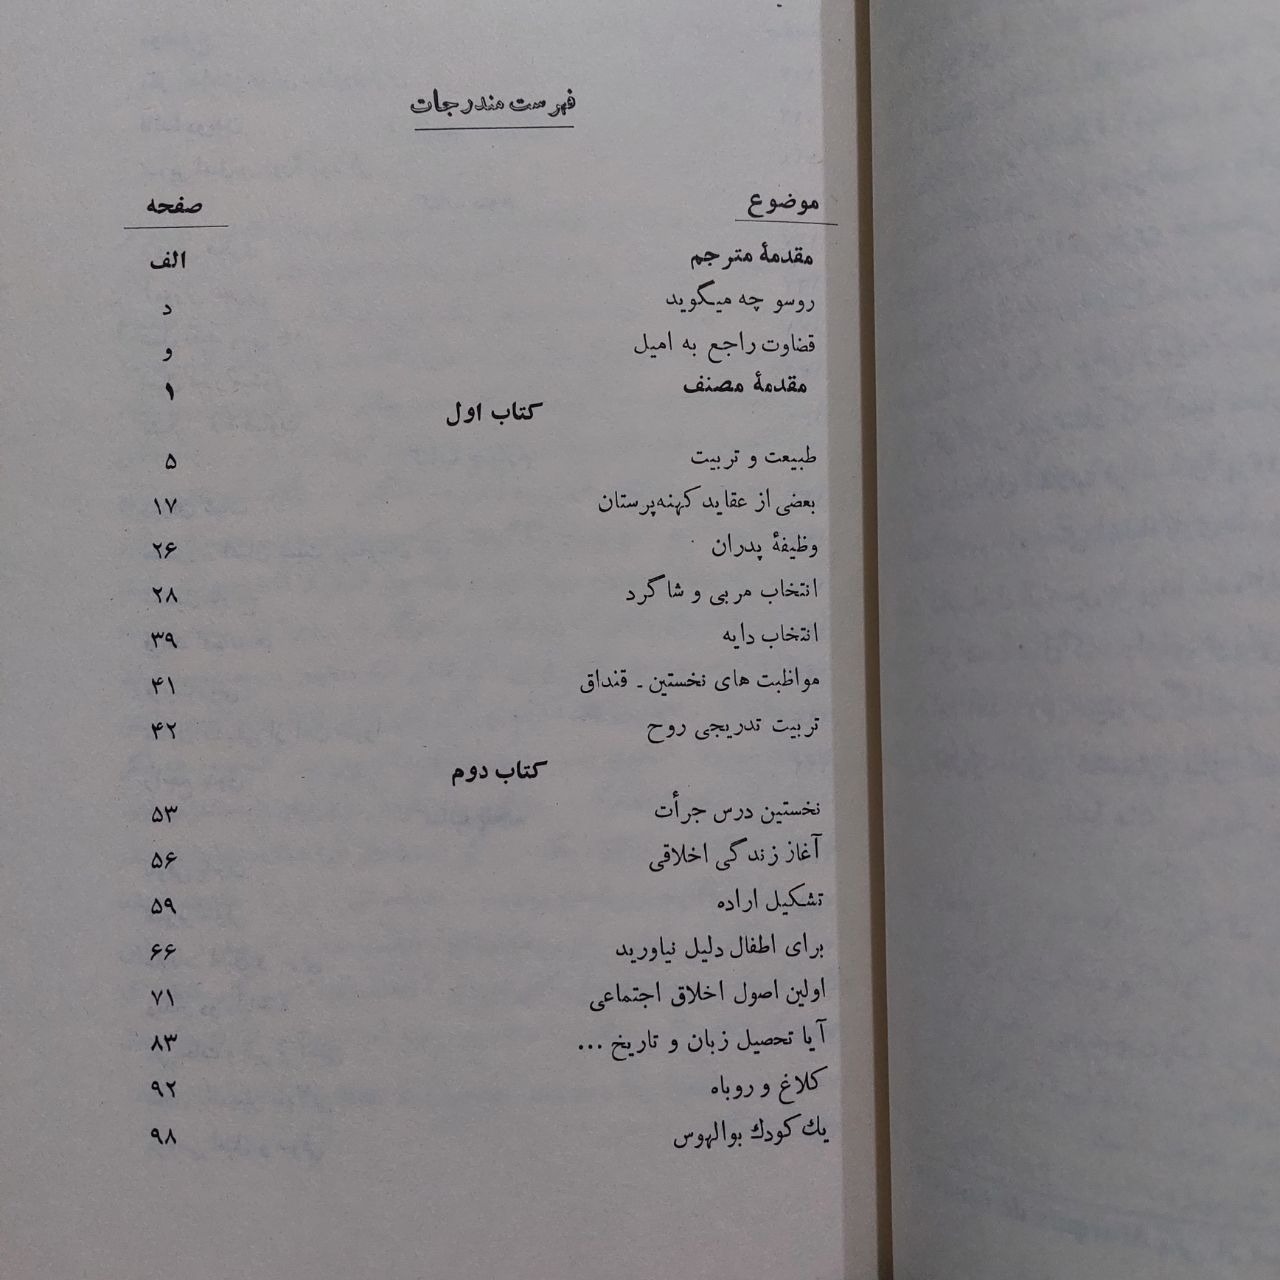 فهرست مندرجات
موضوع صفحه
مقدمهٔ مترجم الف
روسو چه میگوید د
قضاوت راجع به امیل و
مقدمهٔ مصنف ۱
کتاب اول
طبیعت و تربیت ۵
بعضی از عقاید کهنه‌پرستان ۱۷
وظیفهٔ پدران ۲۶
انتخاب مربی و شاگرد ۲۸
انتخاب دایه ۳۹
مواظبت های نخستین ـ قنداق ۴۱
تربیت تدریجی روح ۴۲
کتاب دوم
نخستین درس جرأت ۵۳
آغاز زندگی اخلاقی ۵۶
تشکیل اراده ۵۹
برای اطفال دلیل نیاورید ۶۶
اولین اصول اخلاق اجتماعی ۷۱
آیا تحصیل زبان و تاریخ ... ۸۳
کلاغ و روباه ۹۲
یك کودك بوالهوس ۹۸